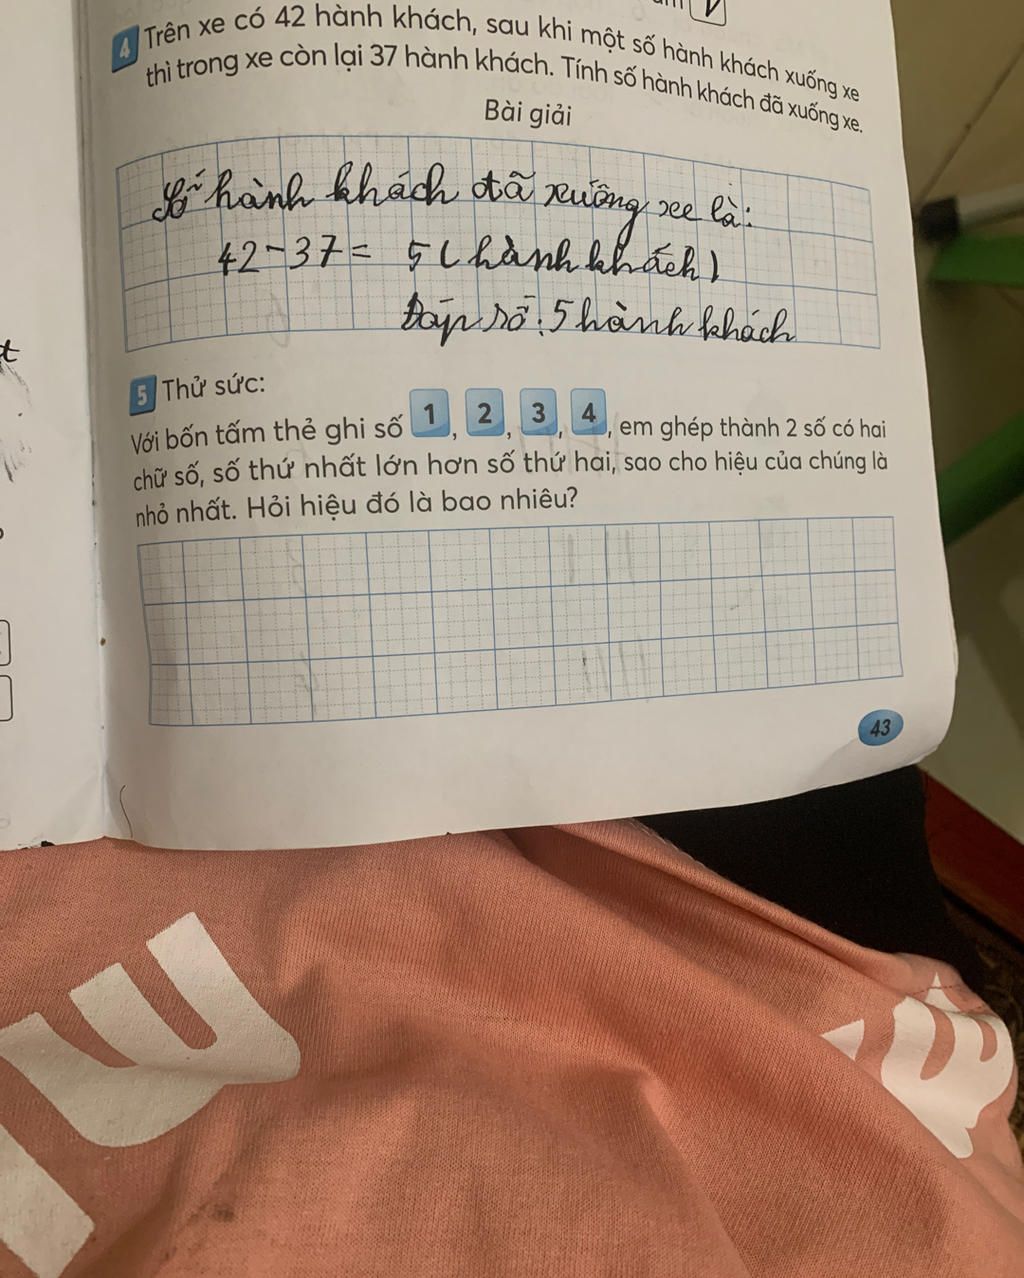 4 Trên xe có 42 hành khách, sau khi một số hành khách xuống xe
thì trong xe còn lại 37 hành khách. Tính số hành khách đã xuống xe.
Bài giải
Số hành khách đã xuống xe là:
42 - 37 = 5 (hành khách)
Đáp số: 5 hành khách
5 Thử sức:
Với bốn tấm thẻ ghi số 1, 2, 3, 4, em ghép thành 2 số có hai
chữ số, số thứ nhất lớn hơn số thứ hai, sao cho hiệu của chúng là
nhỏ nhất. Hỏi hiệu đó là bao nhiêu?
43